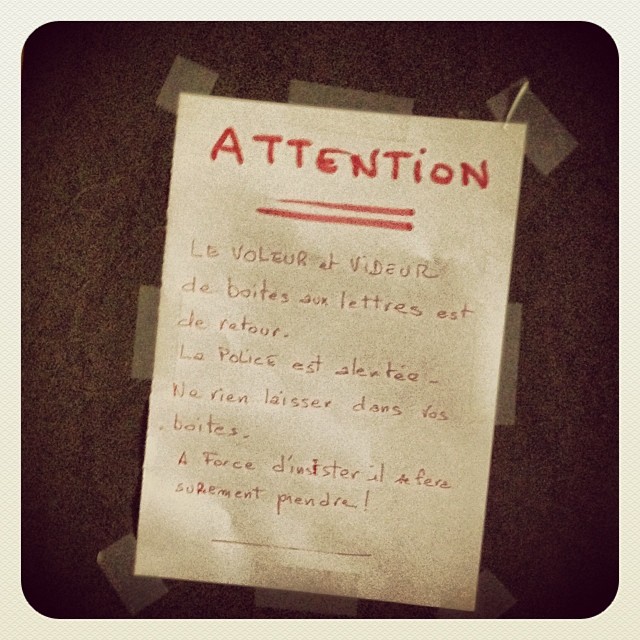 ATTENTION
LE VOLEUR et ViDEUR
de boites aux lettres est
de retour.
La POLICE est alertée -
Ne rien laisser dans vos
boites.
A Force d'insister il se fera
suRement prendre!